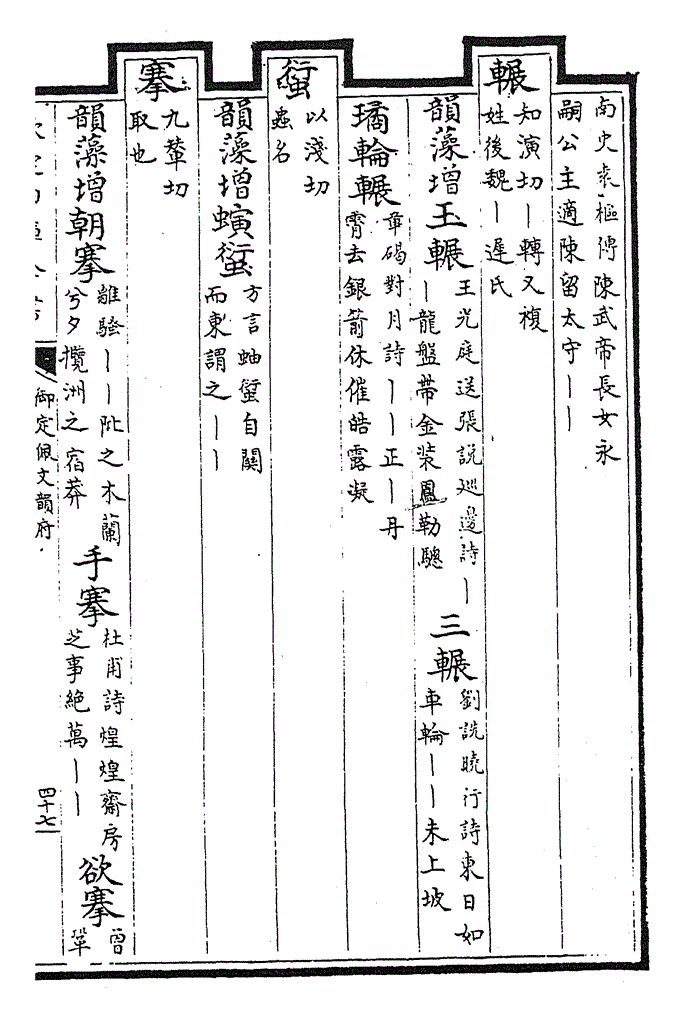 南史袁樞傳陳武帝長女永
嗣公主適陳留太守丨丨
輾
知演切丨轉又複
姓後魏丨遲氏
韻藻增玉輾
王光庭送張說巡邊詩丨
丨龍盤帶金裝鳳勒驄
三輾
劉詵曉行詩東日如
車輪丨丨未上坡
璚輪輾
章碣對月詩丨丨正丨丹
霄去銀箭休催皓露凝
蜑
以淺切
蟲名
韻藻增螾蜑
方言蚰蜑自關
而東謂之丨丨
搴
九輦切
取也
韻藻增朝搴
離騷丨丨阰之木蘭
兮夕攬洲之宿莽
手搴
杜甫詩煌煌齋房
芝事絶萬丨丨
欲搴
曾
鞏
御定佩文韻府
四十七